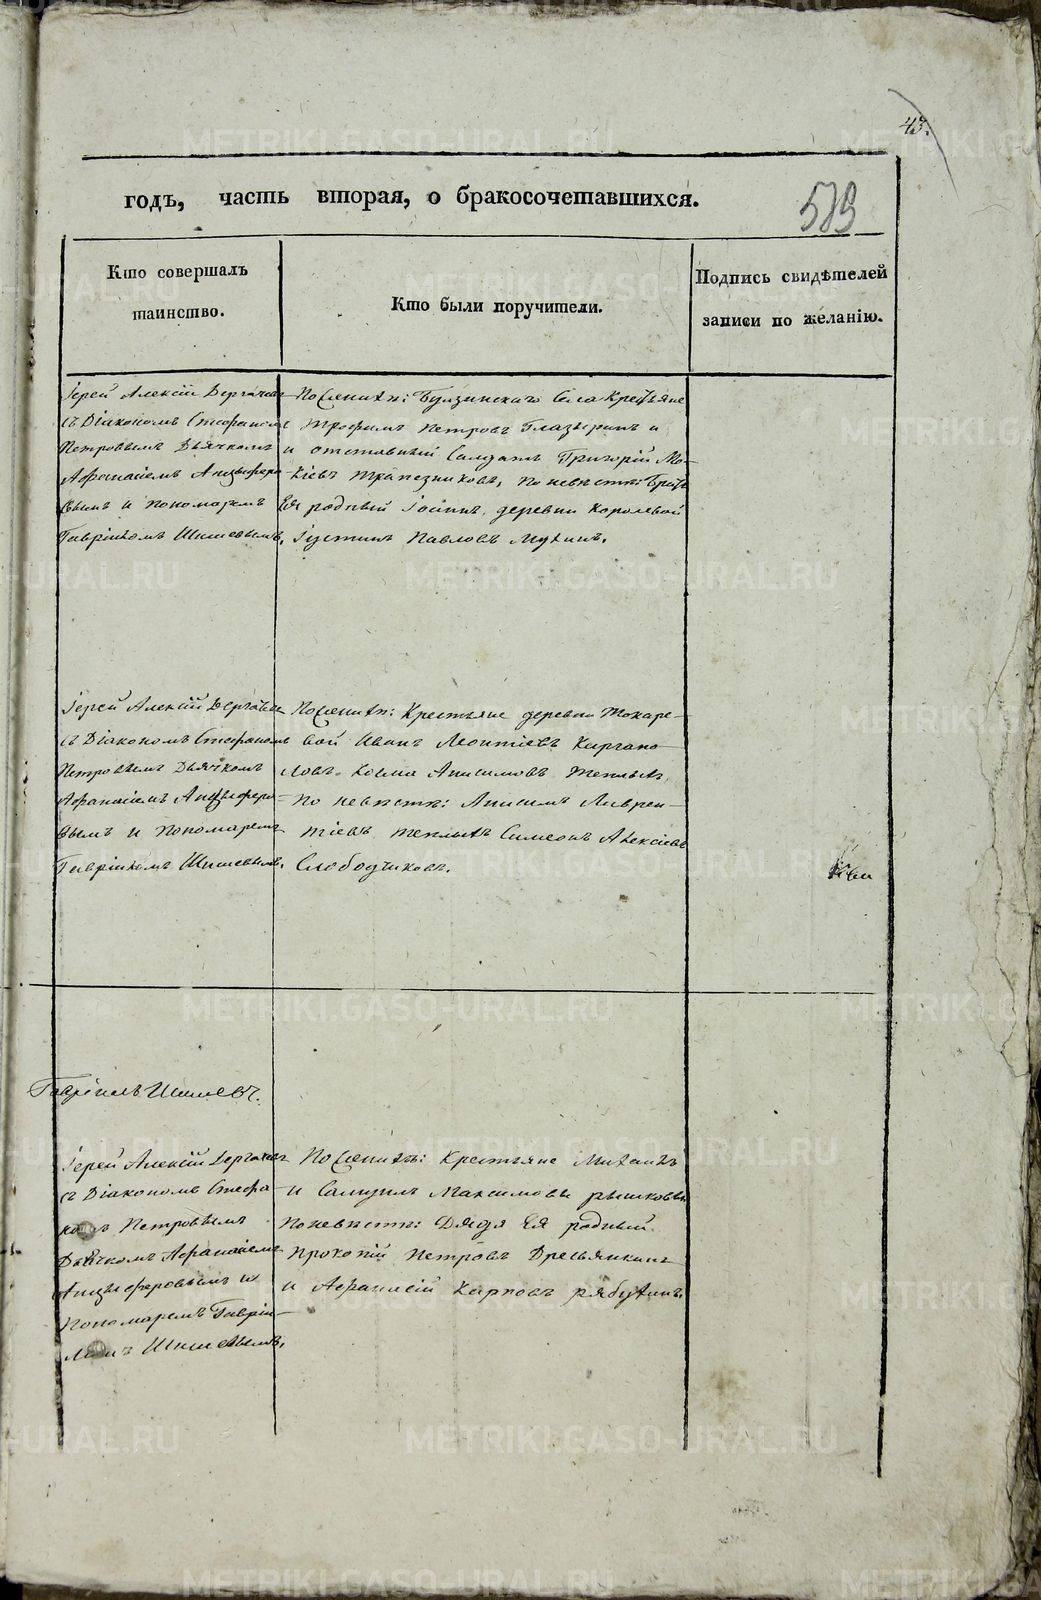 43.
годъ, часть вторая, о бракосочетавшихся.
589
Кто совершалъ
таинство.
Кто были поручители.
Подпись свидѣтелей
записи по желанію.
Іерей Алексій Дергачевъ
съ Діакономъ Стефаномъ
Петровымъ Дьячкомъ
Афанасіемъ Анцыферо-
вымъ и пономаремъ
Гавріиломъ Шишевымъ.
По женихѣ: Булзинскаго Села Крестьяне
Трофимъ Петровъ Глазыринъ и
и отставный Салдатъ Григорій Мо-
кіевъ Трапезниковъ, по невѣстѣ: Братъ
Ея родный Іоаннъ, деревни Королевой
Іустинъ Павловъ Мухинъ.
Іерей Алексій Дергачевъ
съ Діакономъ Стефаномъ
Петровымъ Дьячкомъ
Афанасіемъ Анцыферо-
вымъ и Пономаремъ
Гавріиломъ Шишевымъ.
По женихѣ: Крестьяне деревни Токаре-
вой Иванъ Леонтіевъ Каргапо-
ловъ. Косма Анисимовъ Теплыхъ,
по невѣстѣ: Анисимъ Лаврен-
тіевъ Теплыхъ Симеонъ Алексіевъ
Слободчиковъ.
Гавріилъ Шишевъ.
Іерей Алексій Дергачевъ
съ Діакономъ Стефа-
номъ Петровымъ
Дьячкомъ Афанасіемъ
Анцыферовымъ и
Пономаремъ Гавріи-
ломъ Шишевымъ,
По женихѣ: Крестьяне Михаилъ
и Самуилъ Максимовы рышковы
По невѣстѣ: Дядя Ея родный
Прокопій Петровъ Дресвянкинъ
и Афанасій Карповъ рябухинъ.
METRIKI.GASO-URAL.RU